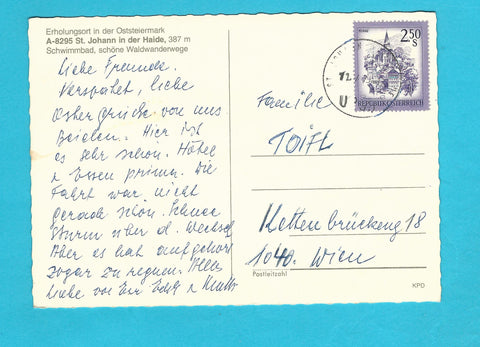 Erholungsort in der Oststeiermark
A-8295 St. Johann in der Haide, 387 m
Schwimmbad, schöne Waldwanderwege
Liebe Freunde.
Verspätet, liebe
Ostergrüße von uns
Beiden. Hier ist
es sehr schön. Hotel
u Essen prima. Die
Fahrt war nicht
gerade schön. Schnee
Sturm über d. Wechsel
Aber es hat aufgehört
sogar zu regnen. Alles
Liebe von
2.50
S
REPUBLIK ÖSTERREICH
Familie
TOIFL
Kettenbrückeng 18
1040. Wien
Postleitzahl
KPD